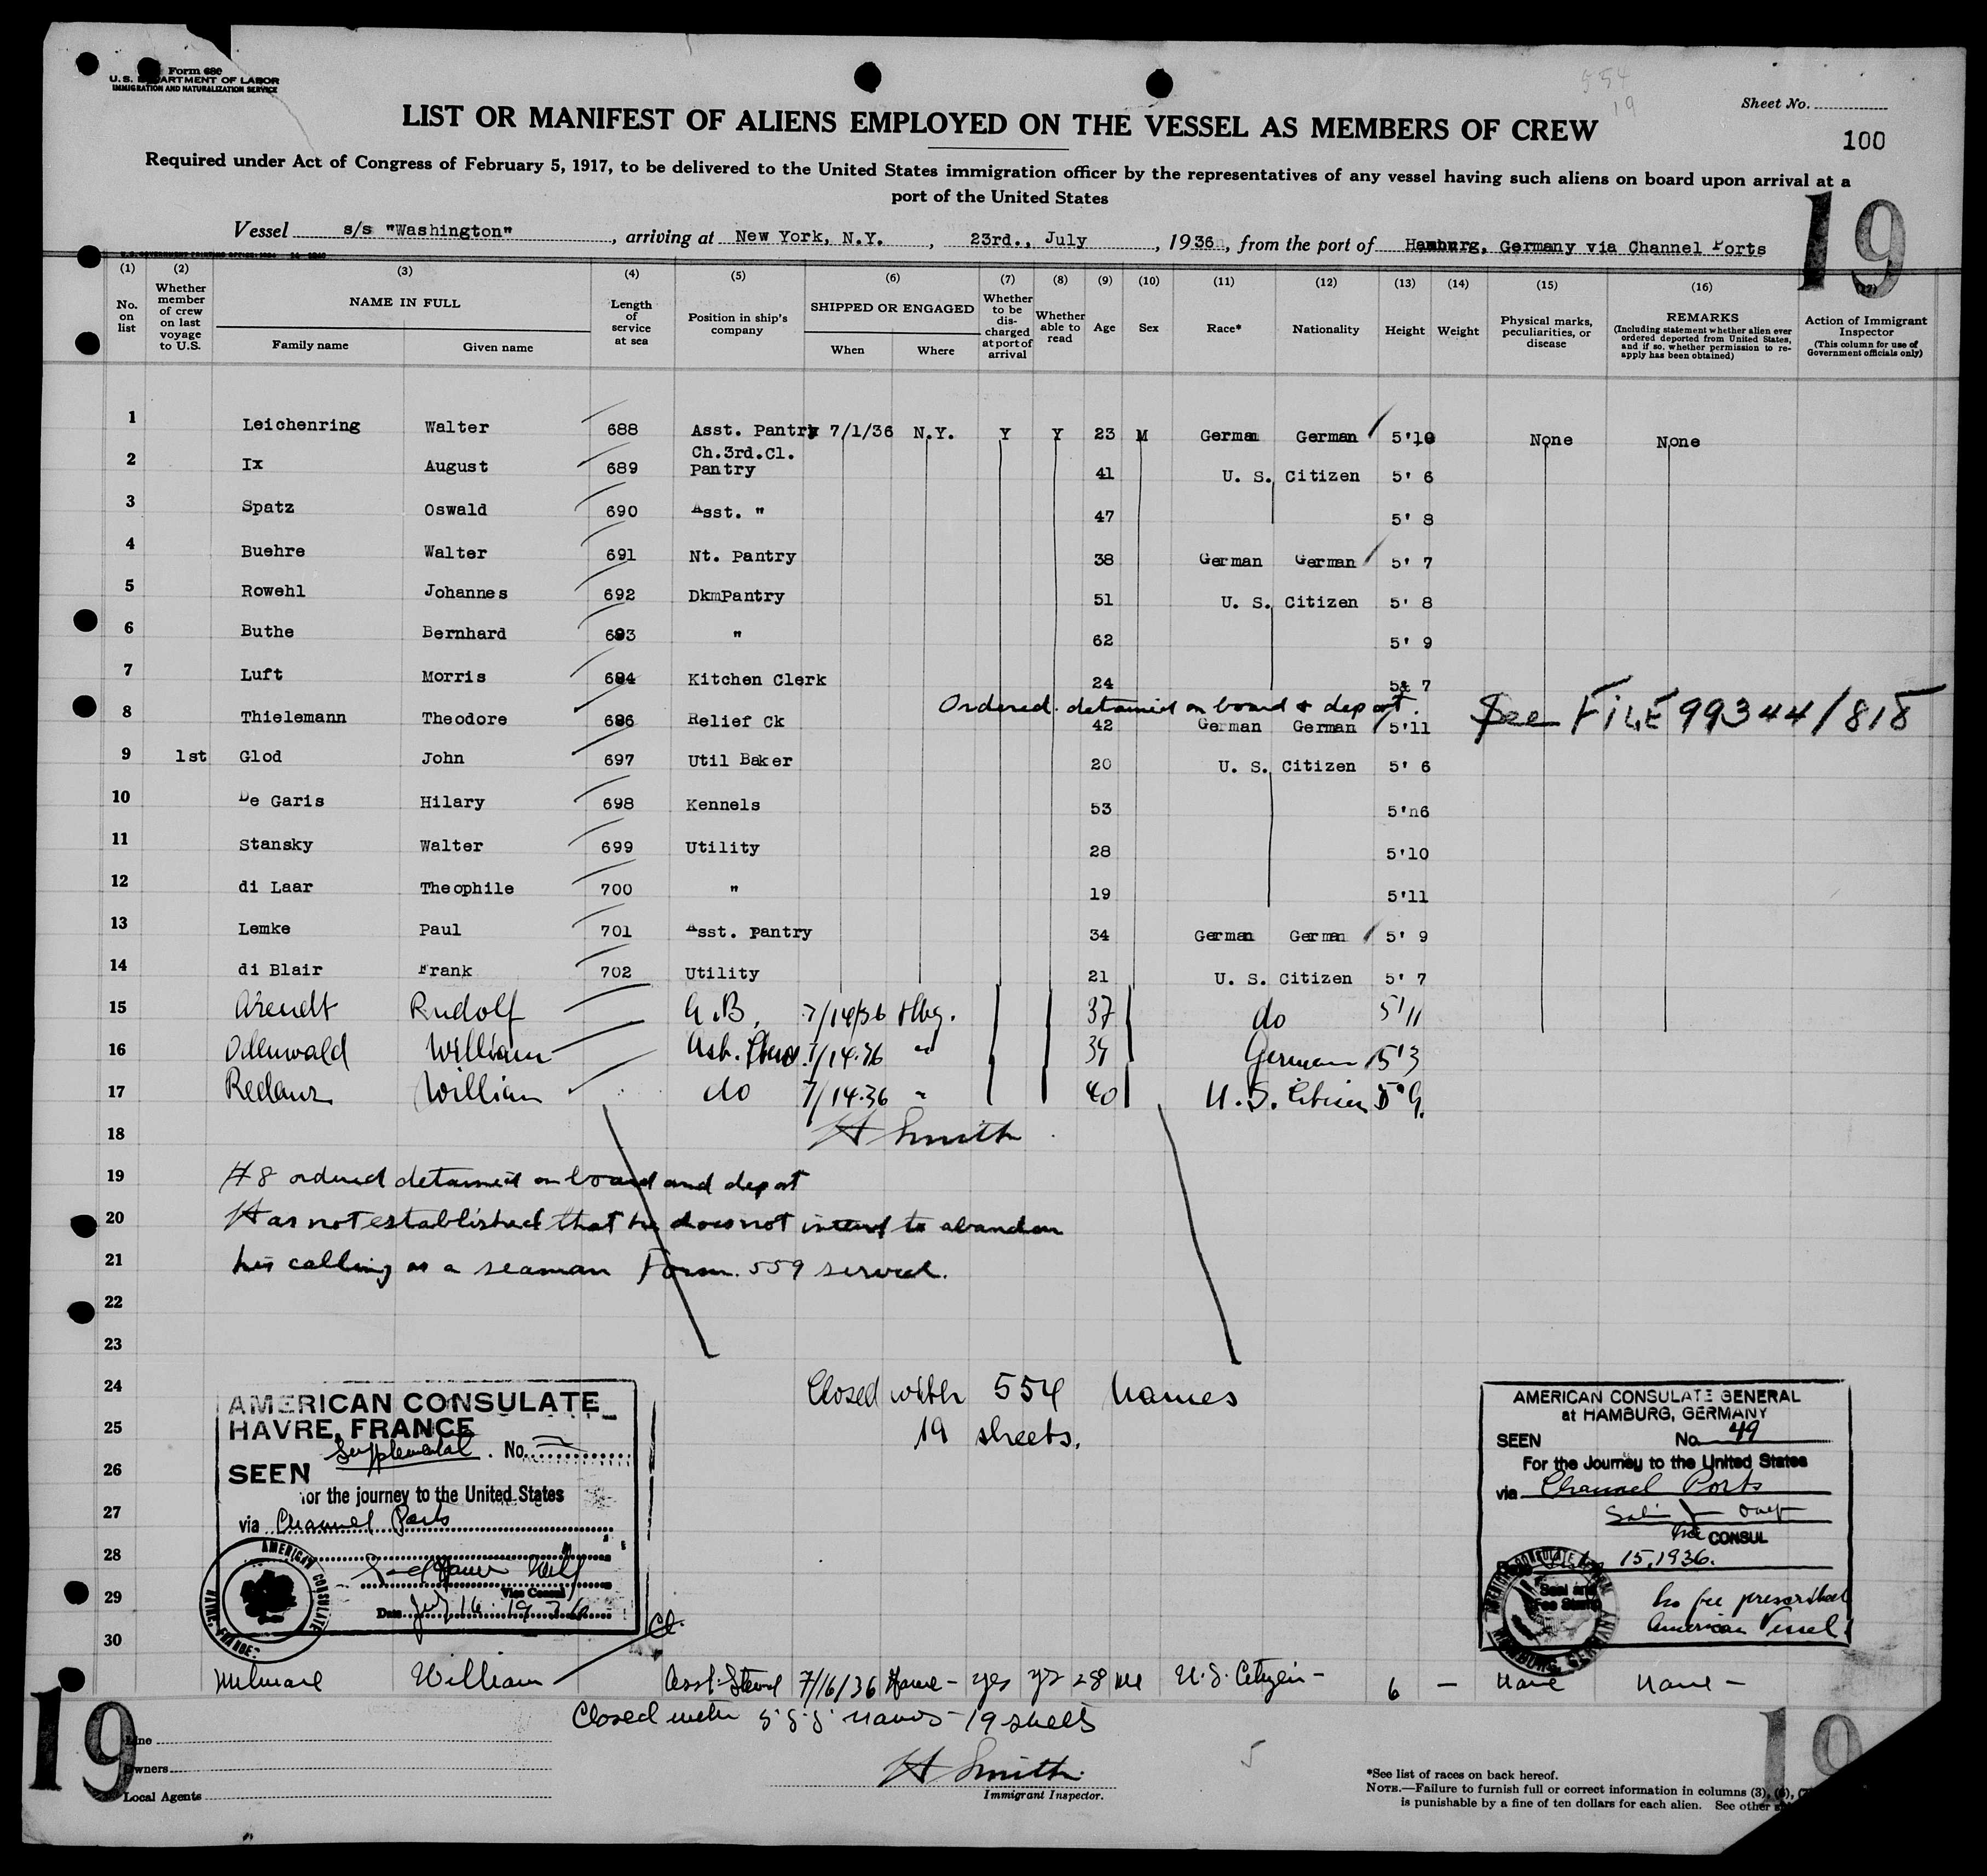 Form 680
U.S. DEPARTMENT OF LABOR
IMMIGRATION AND NATURALIZATION SERVICE
554
19
Sheet No.
100
LIST OR MANIFEST OF ALIENS EMPLOYED ON THE VESSEL AS MEMBERS OF CREW
Required under Act of Congress of February 5, 1917, to be delivered to the United States immigration officer by the representatives of any vessel having such aliens on board upon arrival at a
port of the United States
19
Vessel s/s "Washington", arriving at New York, N.Y., 23rd., July, 1936, from the port of Hamburg, Germany via Channel Ports
(1) (2) (3) (4) (5) (6) (7) (8) (9) (10) (11) (12) (13) (14) (15) (16) (17)
No. on list
Whether member of crew on last voyage to U.S.
NAME IN FULL
Family name Given name
Length of service at sea
Position in ship's company
SHIPPED OR ENGAGED
When Where
Whether to be discharged at port of arrival
Whether able to read
Age
Sex
Race*
Nationality
Height
Weight
Physical marks, peculiarities, or disease
REMARKS
(Including statement whether alien ever ordered deported from United States, and if so, whether permission to re-apply has been obtained)
Action of Immigrant Inspector
(This column for use of Government officials only)
1 Leichenring Walter 688 Asst. Pantry 7/1/36 N.Y. Y Y 23 M German German 5'10 None None
2 Ix August 689 Ch.3rd.Cl. Pantry 41 U. S. Citizen 5' 6
3 Spatz Oswald 690 Asst. " 47 5' 8
4 Buehre Walter 691 Nt. Pantry 38 German German 5' 7
5 Rowehl Johannes 692 DkmPantry 51 U. S. Citizen 5' 8
6 Buthe Bernhard 693 " 62 5' 9
7 Luft Morris 694 Kitchen Clerk 24 5& 7
Ordered detained on board & deport. See FILE 99344/818
8 Thielemann Theodore 696 Relief Ck 42 German German 5'11
9 1st Glod John 697 Util Baker 20 U. S. Citizen 5' 6
10 De Garis Hilary 698 Kennels 53 5'n6
11 Stansky Walter 699 Utility 28 5'10
12 di Laar Theophile 700 " 19 5'11
13 Lemke Paul 701 Asst. Pantry 34 German German 5' 9
14 di Blair Frank 702 Utility 21 U. S. Citizen 5' 7
15 Arendt Rudolf A.B. 7/14/36 Hbg. 37 do 5'11
16 Odenwald William Asst. 7/14.36 " German 5'3
17 William do 7/14.36 " 40 U.S. Citizen 5' 9.
18 H Smith
19 #8 ordered detained on board and deport
20 Has not established that he does not intend to abandon
21 his calling as a seaman Form 559 served.
22
23
24 Closed with 554 names
25 19 sheets.
26
27
28
29
30
AMERICAN CONSULATE
HAVRE, FRANCE
Supplemental. No.
SEEN
for the journey to the United States
via Channel Ports
Vice Consul
Date July 16 1936
AMERICAN CONSULATE HAVRE-FRANCE
AMERICAN CONSULATE GENERAL
at HAMBURG, GERMANY
SEEN No. 49
For the Journey to the United States
via Channel Ports
Vice CONSUL
15, 1936.
Seal and
Fee Stamp
No fee prescribed
American Vessel.
William Asst. Stewd 7/16/36 Havre - yes yes 28 M U.S. Citizen - 6 - None None -
Closed with 555 names - 19 sheets
19
Line
Owners
Local Agents
H Smith
Immigrant Inspector.
5
*See list of races on back hereof.
NOTE.—Failure to furnish full or correct information in columns (3),
is punishable by a fine of ten dollars for each alien. See other
19